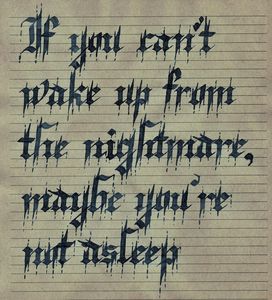 If you can't
wake up from
the nightmare,
maybe you're
not asleep